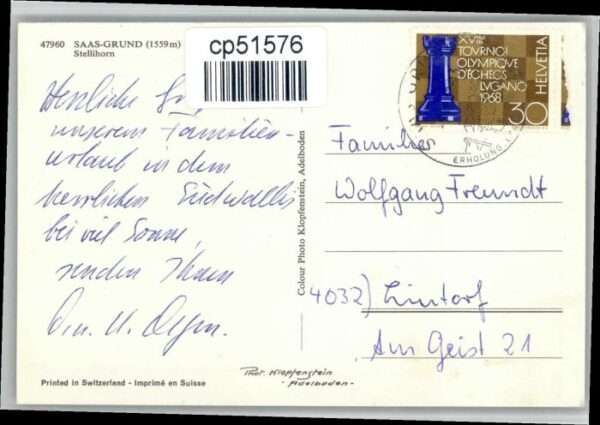 47960 SAAS-GRUND (1559 m)
Stellihorn
cp51576
XVIII
TOURNOI
OLYMPIQUE
D'ÉCHECS
LUGANO
1968
30
HELVETIA
ERHOLUNG
Herzliche
unserem Familien-
urlaub in dem
herrlichen Südwallis
bei viel Sonne,
senden Ihnen
Colour Photo Klopfenstein, Adelboden
Familie
Wolfgang Freundt
4032) Lintorf
Am Geist 21
Phot. Klopfenstein
- Adelboden -
Printed in Switzerland - Imprimé en Suisse